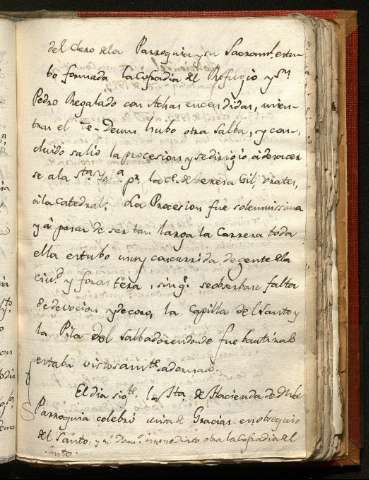 del Clero de la Parroquia y su Sacramtl. estu-
bo formada la Cofradia del Refugio y Sn.
Pedro Regalado con Achas encendidas, mien-
tras el Te-Deum hubo otra Salba, y con-
cluido salio la procesion y se dirigio a
se a la Sta. y a pr. la C. de Teresa Gil, Orates,
a la Catedral. La Procesion fue solemnissima
y a pesar de ser tan larga la Carrera toda
ella estubo muy concurrida de gente de la
Ciud. y forastera, sin qe. se obserbase falta
de debocion y decoro, la Capilla del Santo y
la Pila del Salbador donde fue bautizado
estaba vistosamte. adornada.
El dia sigte. la Sta. de Hacienda de dicha
Parroquia celebró de Gracias en obsequio
del Santo, y el Domo. inmediato otra la Cofradia del